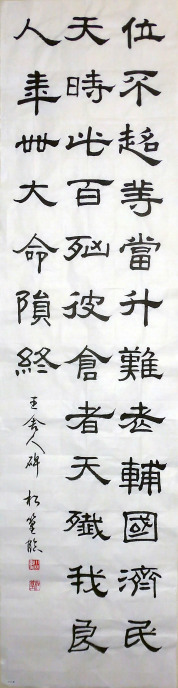 位不超等當升難老輔國濟民
天時百彼倉者天殲我良
人年大命隕終
王舍人碑 臨